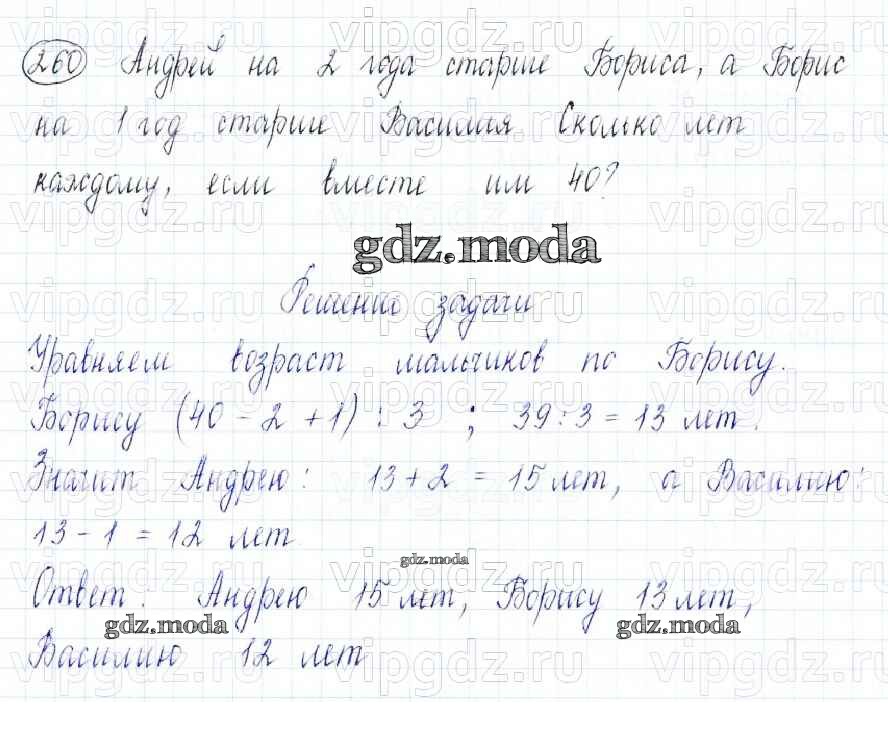 260 Андрей на 2 года старше Бориса, а Борис
на 1 год старше Василия. Сколько лет
каждому, если вместе им 40?
gdz.moda
Решение задачи
Уравняем возраст мальчиков по Борису.
Борису (40 - 2 + 1) : 3 ; 39 : 3 = 13 лет.
Значит Андрею: 13 + 2 = 15 лет, а Василию:
13 - 1 = 12 лет
gdz.moda
Ответ: Андрею 15 лет, Борису 13 лет,
gdz.moda gdz.moda
Василию 12 лет
vipgdz.ru vipgdz.ru vipgdz.ru